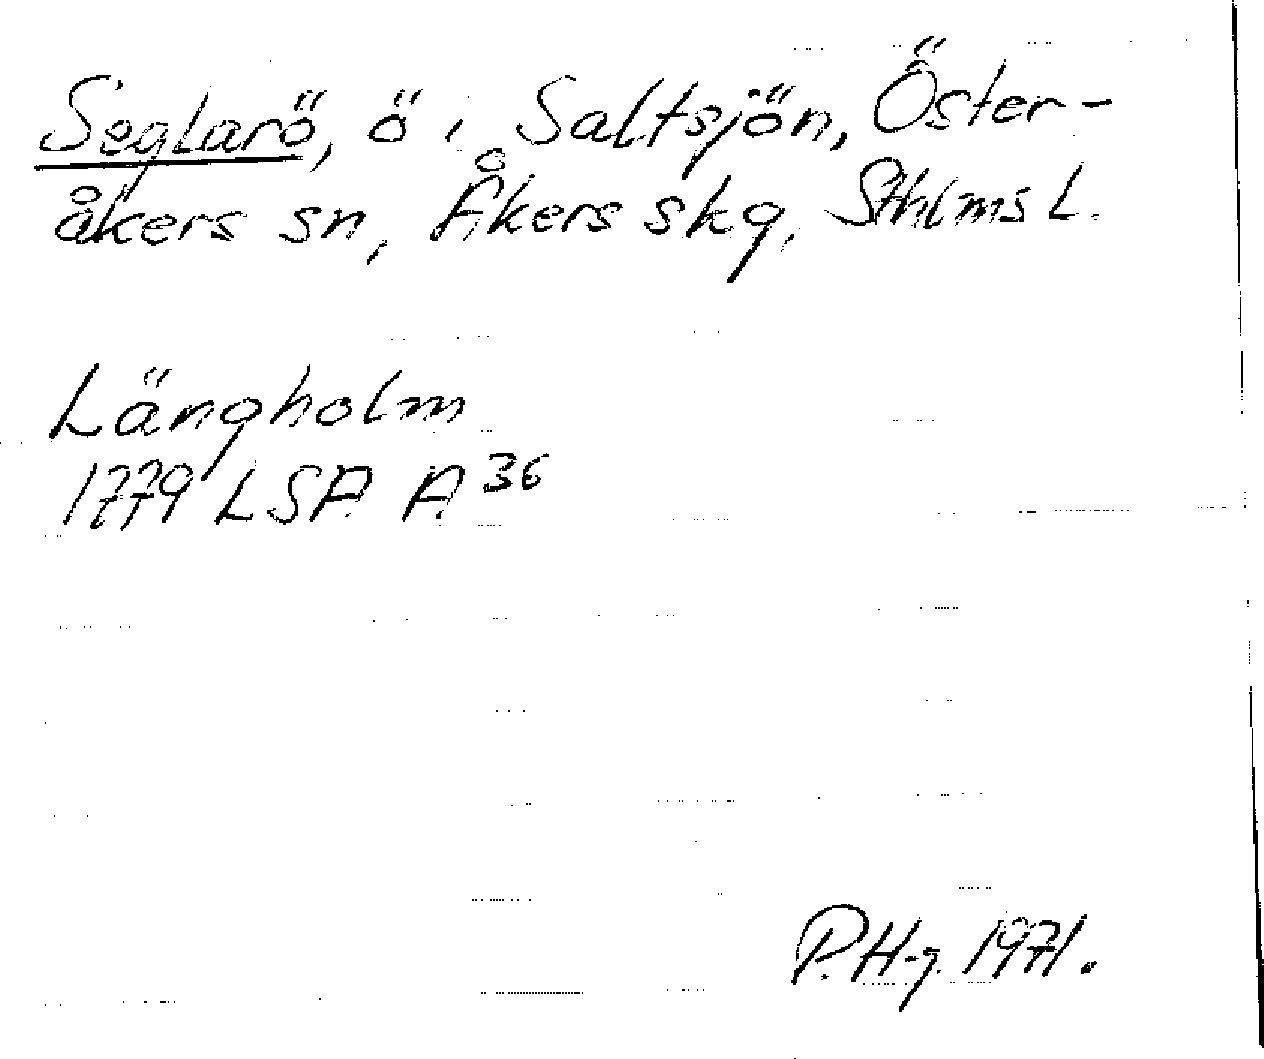 Seglarö, ö i Saltsjön, Öster-
åkers sn, Åkers skg, Sthlms l.
Längholm
1779 LSA A 36
P.H-g. 1971.